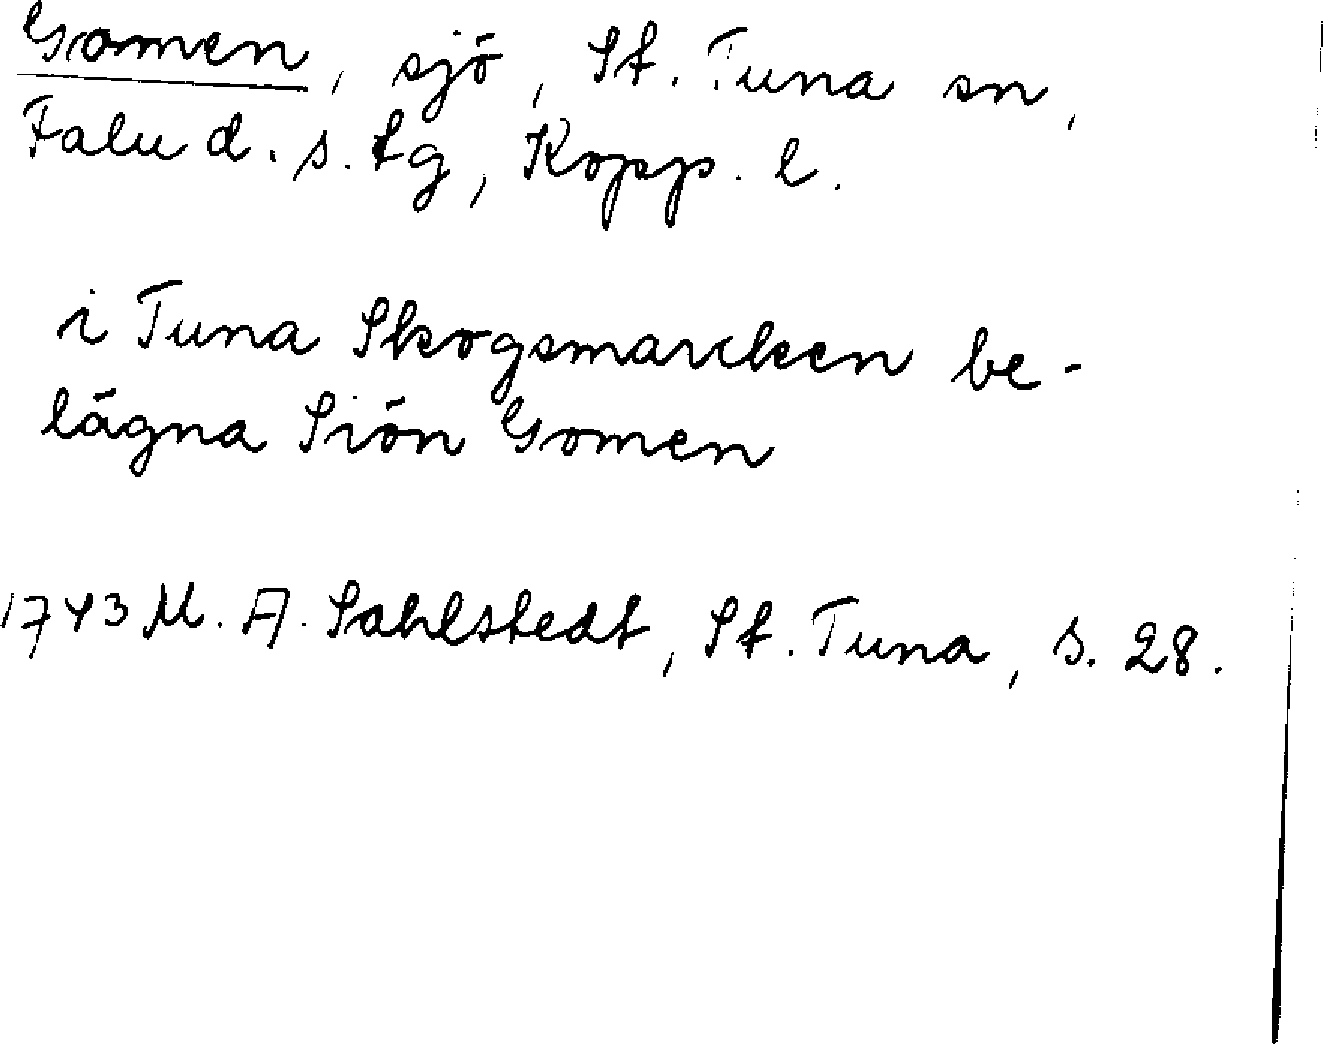 Gomen, sjö, St. Tuna sn,
Falu d. s. tg, Kopp. l.
i Tuna Skogsmarcken be-
lägna Siön Gomen
1743 M. A. Sahlstedt, St. Tuna, s. 28.